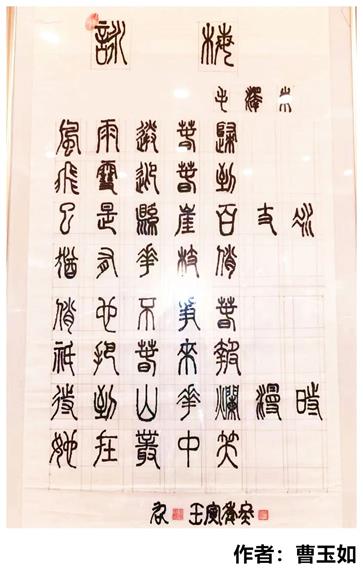 詠梅
毛澤東
風雨送春歸
飛雪迎春到
已是縣崖百丈冰
猶有華枝俏
俏也不爭春
祇把春來報
待到山華爛漫時
她在叢中笑
壬寅
作者：曹玉如